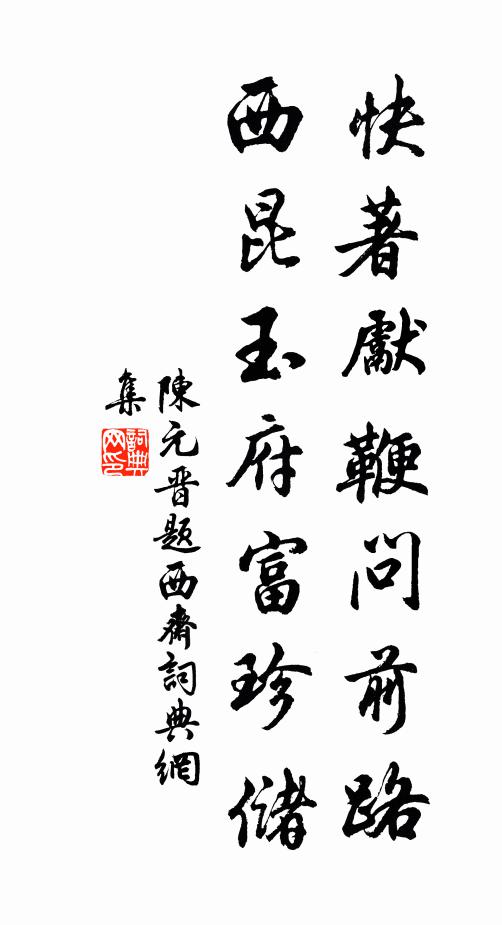 快著獻鞭問前路
西昆玉府富珍儲
陳元晋題西齋詞典網
集
詞典
网印